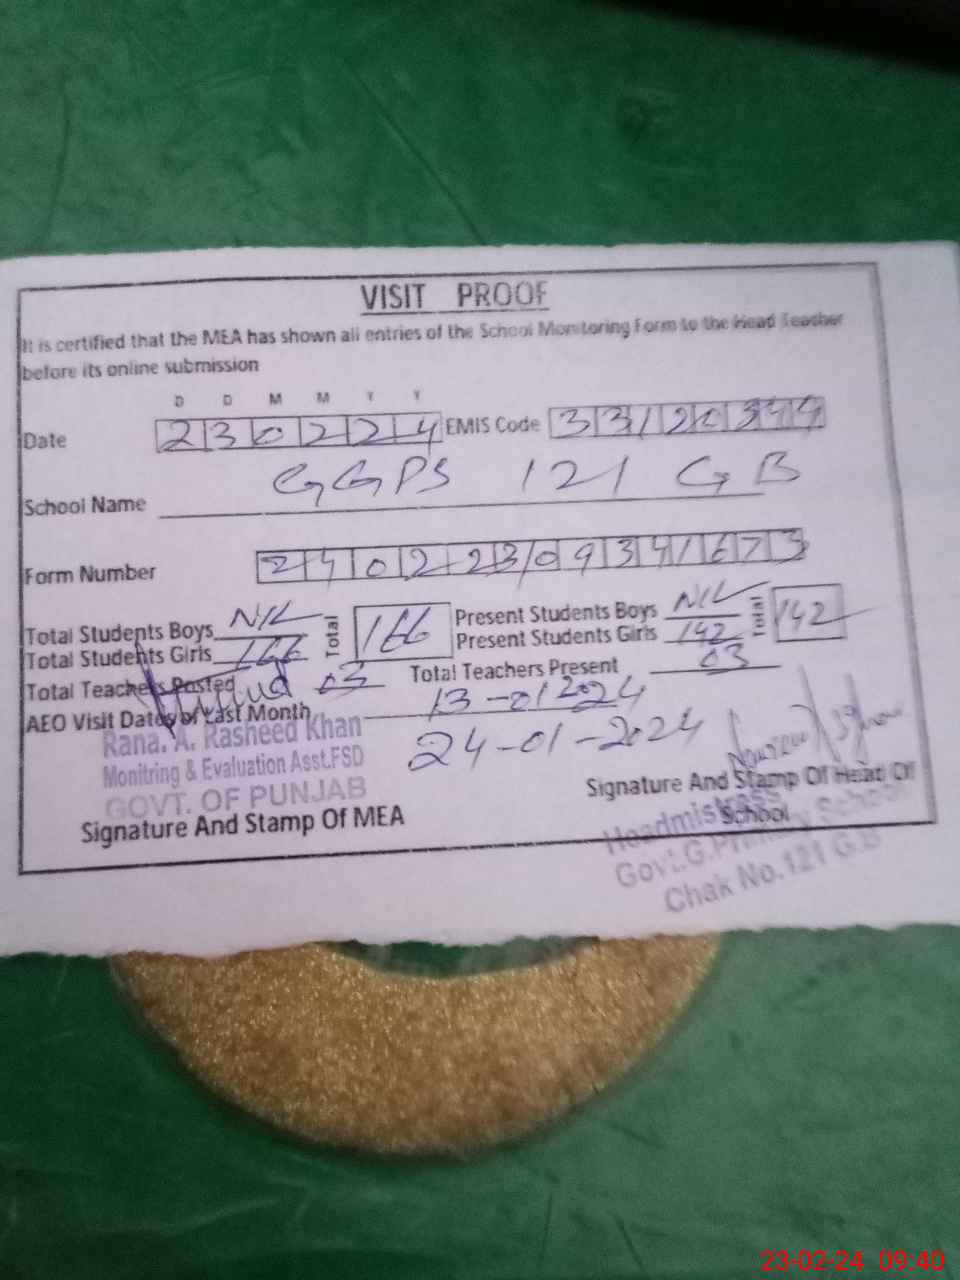 VISIT PROOF
It is certified that the MEA has shown all entries of the School Monitoring Form to the Head Teacher
before its online submission
D D M M Y Y
Date 230224 EMIS Code 33120344
School Name GGPS 121 GB
Form Number 24022309341673
Total Students Boys NIL Total 166 Present Students Boys NIL Total 142
Total Students Girls 166 Present Students Girls 142
Total Teachers Posted 03 Total Teachers Present 03
AEO Visit Dates of Last Month 13-01-2024
24-01-2024
Rana. A. Rasheed Khan
Monitring & Evaluation Asst.FSD
GOVT. OF PUNJAB
Signature And Stamp Of MEA
Signature And Stamp Of Head Of
School
Headmistress
Govt.G.Primary School
Chak No.121 G.B
23-02-24 09:40